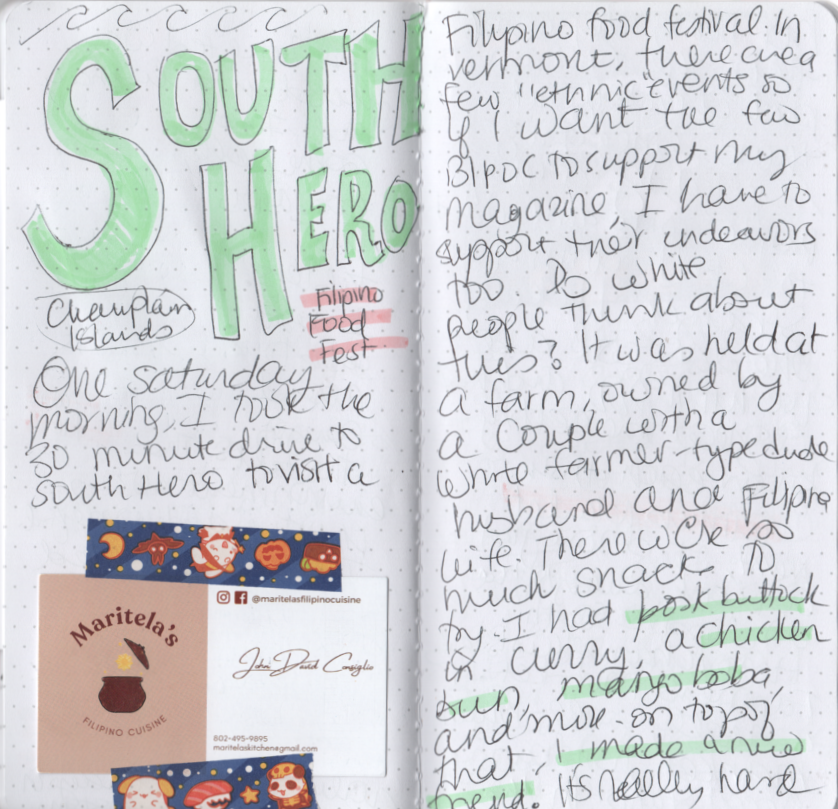 SOUTH
HERO
Champlain
Islands
Filipino
Food
Fest
One saturday
morning, I took the
30 minute drive to
South Hero to visit a
Maritela's
FILIPINO CUISINE
@maritelasfilipinocuisine
John David Consiglio
802-495-9895
maritelaskitchen@gmail.com
Filipino food festival. In
vermont, there are a
few "ethnic" events so
if I want the few
BIPOC to support my
magazine, I have to
support their endeavors
too. Do white
people think about
this? It was held at
a farm, owned by
a couple with a
white farmer-type dude
husband and Filipina
wife. There were so
much snack to
try. I had pork buttock
in curry, a chicken
bun, mango boba,
and more. on top of
that, I made a new
friend. It's really hard